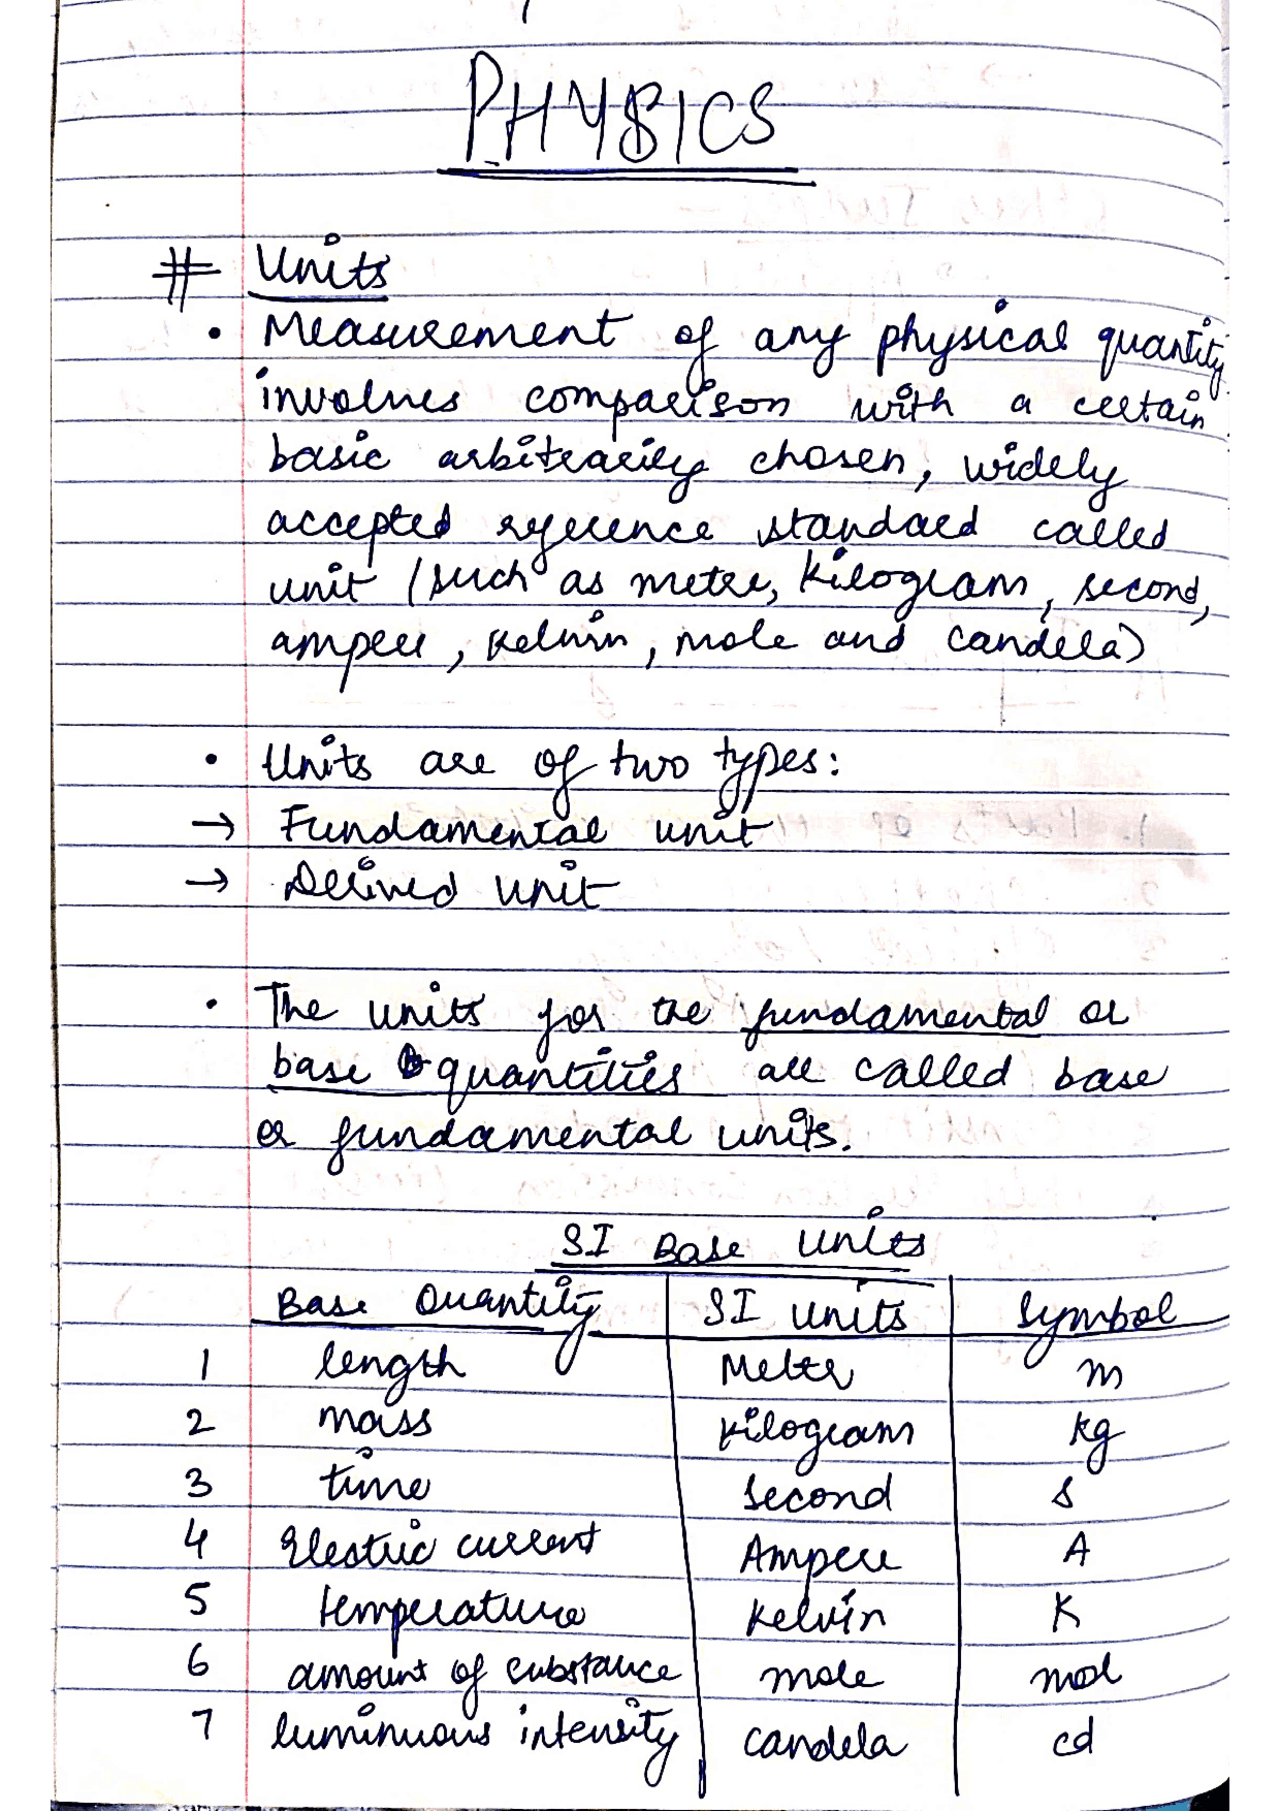 PHYSICS
# Units
• Measurement of any physical quantity
involves comparison with a certain
basic arbitrarily chosen, widely
accepted reference standard called
unit (such as metre, kilogram, second,
ampere, kelvin, mole and candela)
• Units are of two types:
→ Fundamental unit
→ Derived unit
• The units for the fundamental or
base quantities are called base
or fundamental units.
SI Base Units
Base Quantity SI Units Symbol
1 length Meter m
2 mass kilogram kg
3 time second s
4 Electric current Ampere A
5 temperature Kelvin K
6 amount of substance mole mol
7 luminuous intensity candela cd